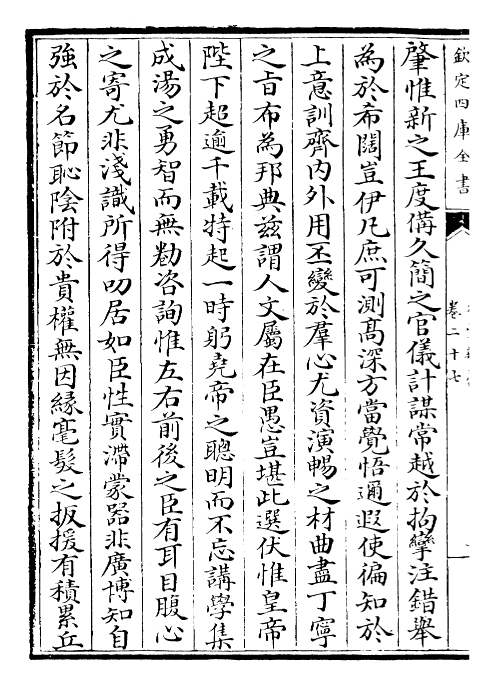 欽定四庫全書
卷二十七
肇惟新之王度備久簡之官儀計謀常越於拘攣注錯舉
為於希闊豈伊凡庶可測髙深方當覺悟邇遐使徧知於
上意訓齊内外用丕變於羣心尤資演暢之材曲盡丁寧
之㫖布為邦典兹謂人文屬在臣愚豈堪此選伏惟皇帝
陛下超逾千載特起一時躬堯帝之聰明而不忘講學集
成湯之勇智而無勌咨詢惟左右前後之臣有耳目腹心
之寄尤非淺識所得叨居如臣性實滯蒙器非廣博知自
強於名節恥陰附於貴權無因緣毫髮之扳援有積累丘